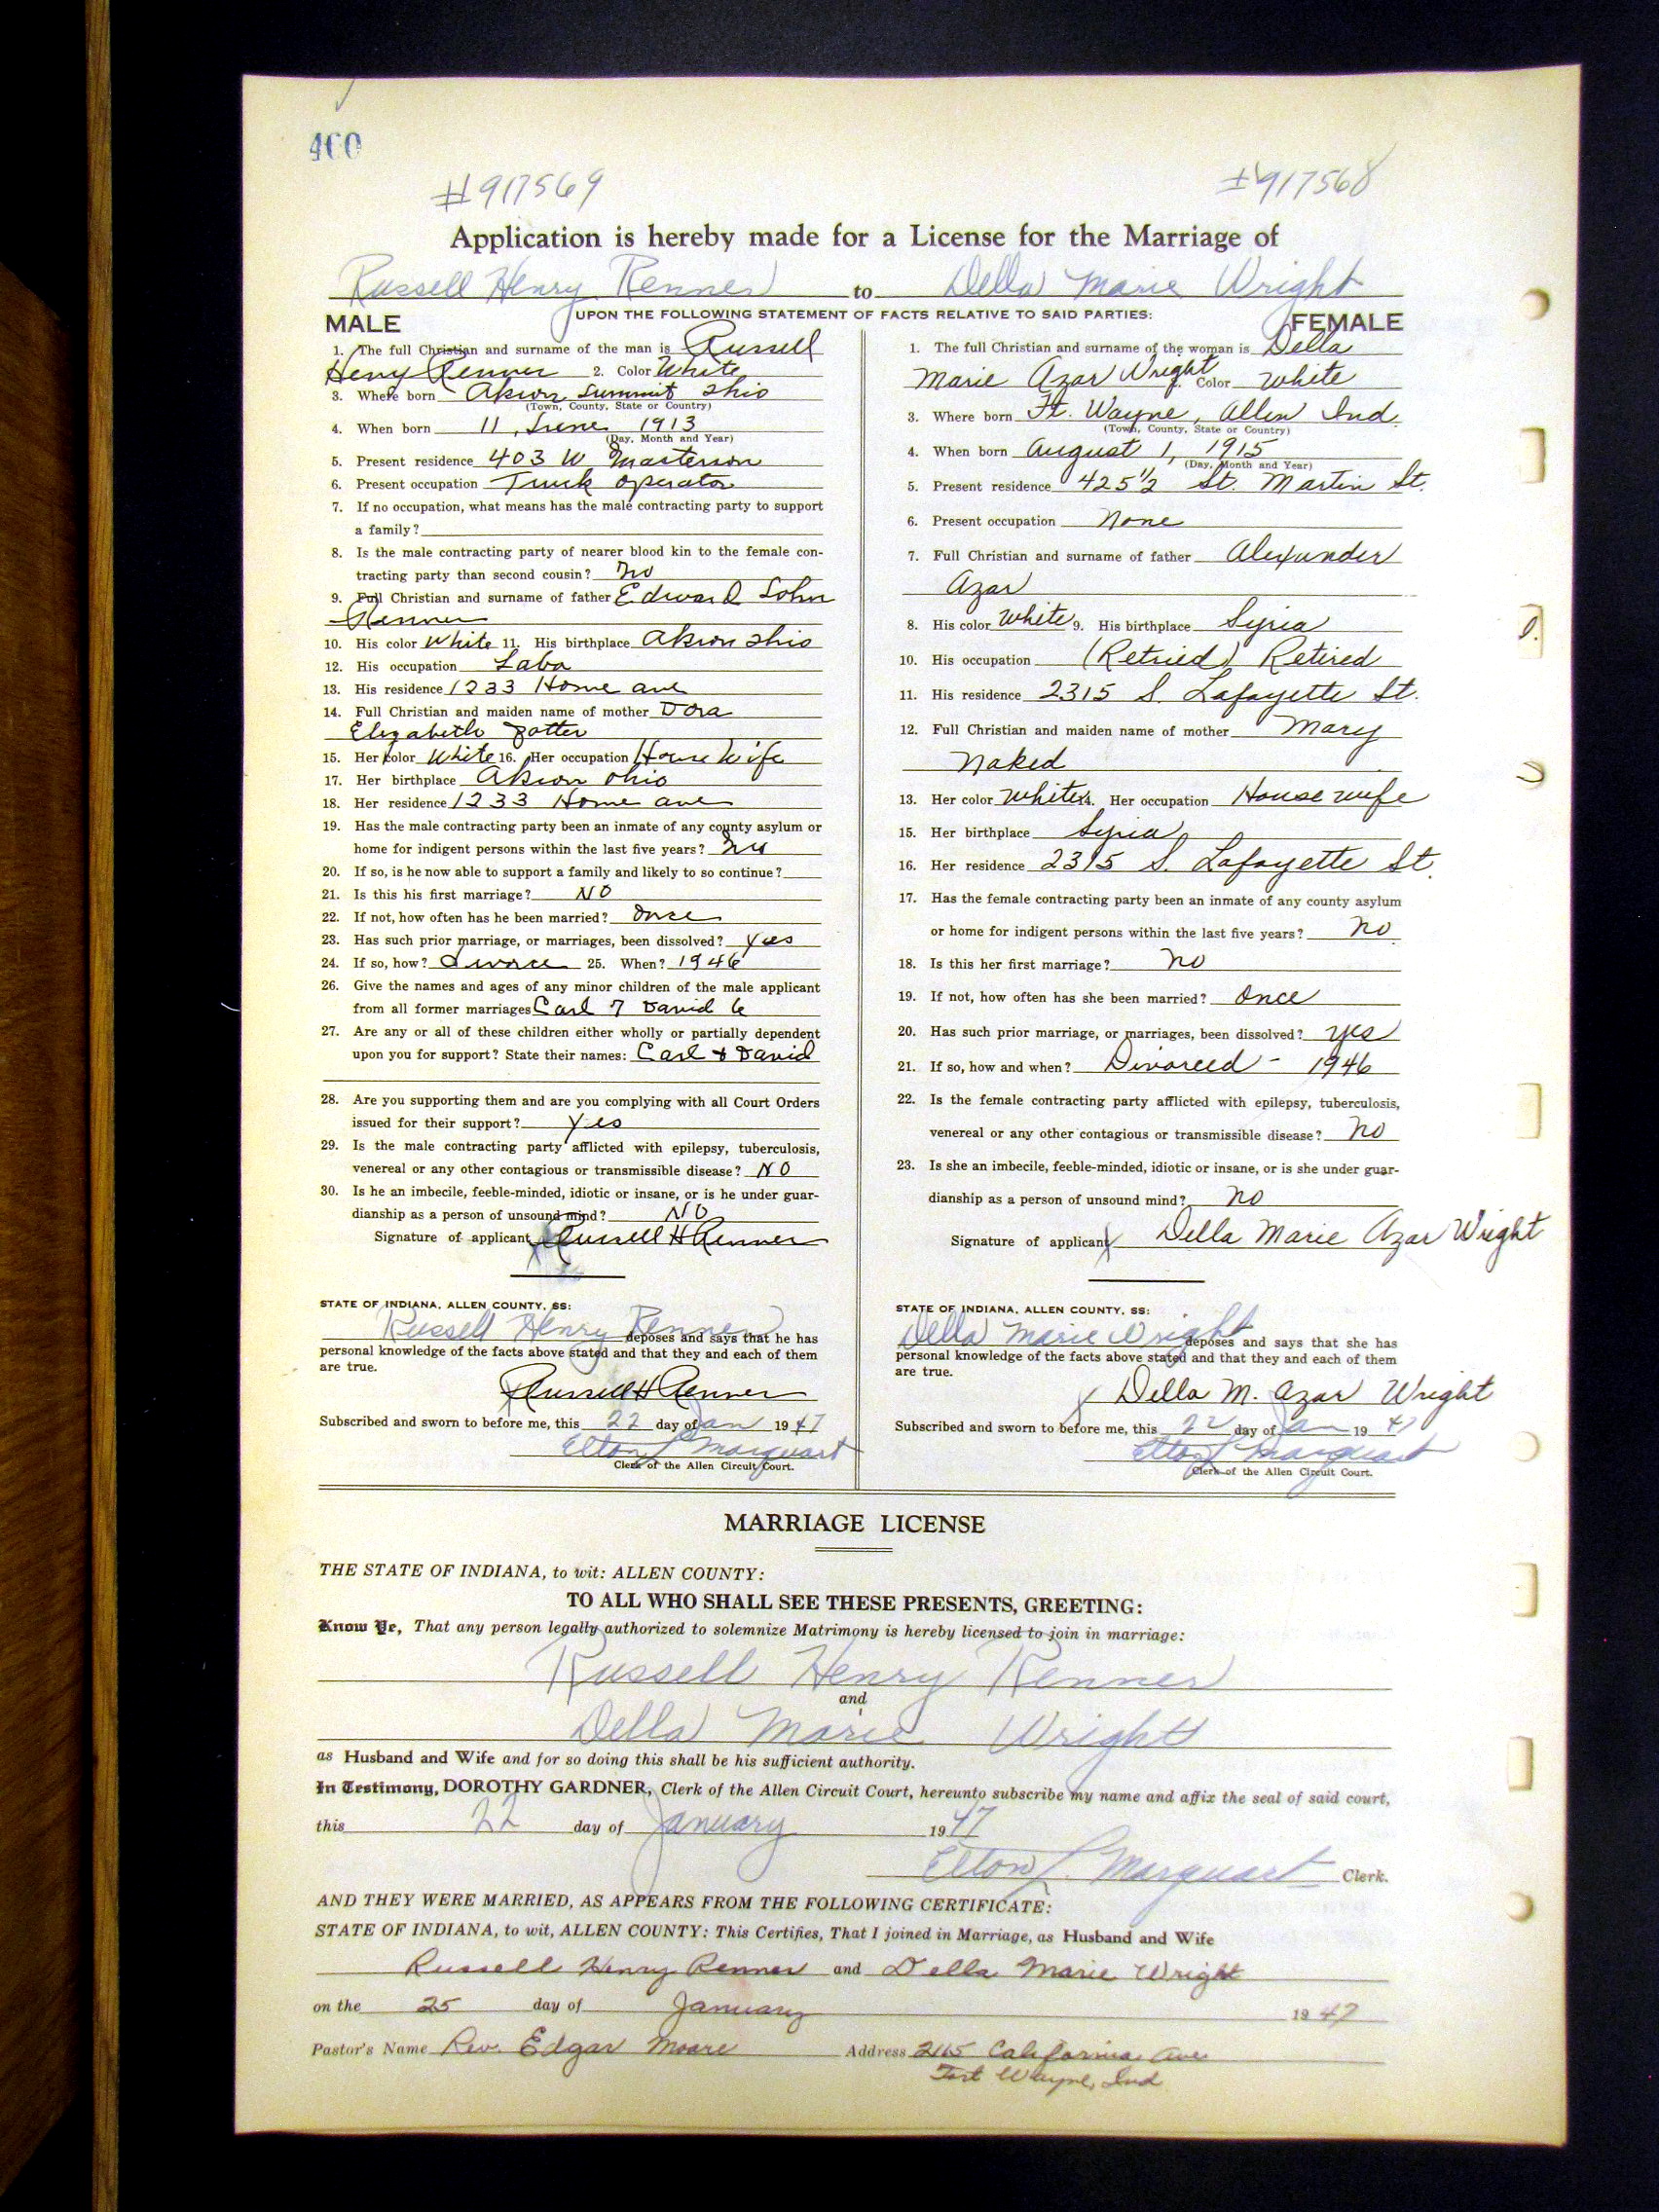 400
#917569 #917568
Application is hereby made for a License for the Marriage of
Russell Henry Renner to Della Marie Wright
UPON THE FOLLOWING STATEMENT OF FACTS RELATIVE TO SAID PARTIES:
MALE
1. The full Christian and surname of the man is Russell
Henry Renner 2. Color White
3. Where born Akron Summit Ohio
(Town, County, State or Country)
4. When born 11, June 1913
(Day, Month and Year)
5. Present residence 403 W Masterson
6. Present occupation Truck operator
7. If no occupation, what means has the male contracting party to support
a family?
8. Is the male contracting party of nearer blood kin to the female con-
tracting party than second cousin? No
9. Full Christian and surname of father Edward John
Renner
10. His color White 11. His birthplace Akron Ohio
12. His occupation Labo
13. His residence 1233 Home ave
14. Full Christian and maiden name of mother Dora
Elizabeth Potter
15. Her color White 16. Her occupation House Wife
17. Her birthplace Akron Ohio
18. Her residence 1233 Home ave
19. Has the male contracting party been an inmate of any county asylum or
home for indigent persons within the last five years? No
20. If so, is he now able to support a family and likely to so continue?
21. Is this his first marriage? NO
22. If not, how often has he been married? Once
23. Has such prior marriage, or marriages, been dissolved? Yes
24. If so, how? Divorce 25. When? 1946
26. Give the names and ages of any minor children of the male applicant
from all former marriages Carl 7 David 6
27. Are any or all of these children either wholly or partially dependent
upon you for support? State their names: Carl + David
28. Are you supporting them and are you complying with all Court Orders
issued for their support? Yes
29. Is the male contracting party afflicted with epilepsy, tuberculosis,
venereal or any other contagious or transmissible disease? NO
30. Is he an imbecile, feeble-minded, idiotic or insane, or is he under guar-
dianship as a person of unsound mind? NO
Signature of applicant Russell H Renner
STATE OF INDIANA, ALLEN COUNTY, SS:
Russell Henry Renner deposes and says that he has
personal knowledge of the facts above stated and that they and each of them
are true.
x Russell H Renner
Subscribed and sworn to before me, this 22 day of Jan 1947
Elton L Marquart
Clerk of the Allen Circuit Court.
FEMALE
1. The full Christian and surname of the woman is Della
Marie Azar Wright Color White
3. Where born Ft. Wayne, Allen Ind.
(Town, County, State or Country)
4. When born August 1, 1915
(Day, Month and Year)
5. Present residence 425½ St. Martin St.
6. Present occupation None
7. Full Christian and surname of father Alexander
Azar
8. His color White 9. His birthplace Syria
10. His occupation (Retried) Retired
11. His residence 2315 S. Lafayette St.
12. Full Christian and maiden name of mother Mary
Naked
13. Her color White 14. Her occupation Housewife
15. Her birthplace Syria
16. Her residence 2315 S. Lafayette St.
17. Has the female contracting party been an inmate of any county asylum
or home for indigent persons within the last five years? No
18. Is this her first marriage? No
19. If not, how often has she been married? Once
20. Has such prior marriage, or marriages, been dissolved? Yes
21. If so, how and when? Divorced - 1946
22. Is the female contracting party afflicted with epilepsy, tuberculosis,
venereal or any other contagious or transmissible disease? No
23. Is she an imbecile, feeble-minded, idiotic or insane, or is she under guar-
dianship as a person of unsound mind? No
Signature of applicant x Della Marie Azar Wright
STATE OF INDIANA, ALLEN COUNTY, SS:
Della Marie Wright deposes and says that she has
personal knowledge of the facts above stated and that they and each of them
are true.
x Della M. Azar Wright
Subscribed and sworn to before me, this 22 day of Jan 19 47
Elton L Marquart
Clerk of the Allen Circuit Court.
MARRIAGE LICENSE
THE STATE OF INDIANA, to wit: ALLEN COUNTY:
TO ALL WHO SHALL SEE THESE PRESENTS, GREETING:
Know Ye, That any person legally authorized to solemnize Matrimony is hereby licensed to join in marriage:
Russell Henry Renner
and
Della Marie Wright
as Husband and Wife and for so doing this shall be his sufficient authority.
In Testimony, DOROTHY GARDNER, Clerk of the Allen Circuit Court, hereunto subscribe my name and affix the seal of said court,
this 22 day of January 1947
Elton L. Marquart Clerk.
AND THEY WERE MARRIED, AS APPEARS FROM THE FOLLOWING CERTIFICATE:
STATE OF INDIANA, to wit, ALLEN COUNTY: This Certifies, That I joined in Marriage, as Husband and Wife
Russell Henry Renner and Della Marie Wright
on the 25 day of January 1947
Pastor's Name Rev. Edgar Moore Address 2165 California Ave
Fort Wayne, Ind